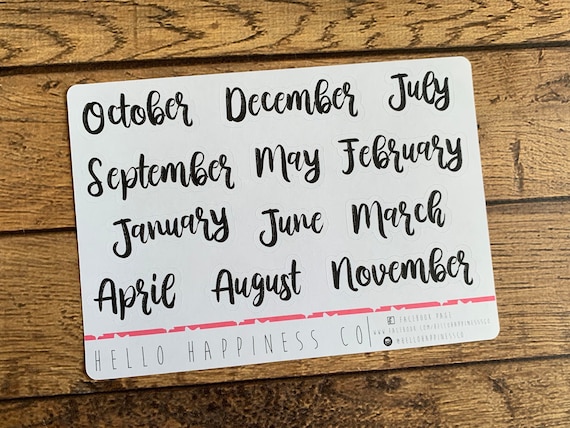 October December July
September May February
January June March
April August November
HELLO HAPPINESS CO
FACEBOOK PAGE
WWW.FACEBOOK.COM/HELLOHAPPINESSCO
@HELLOHAPPINESSCO